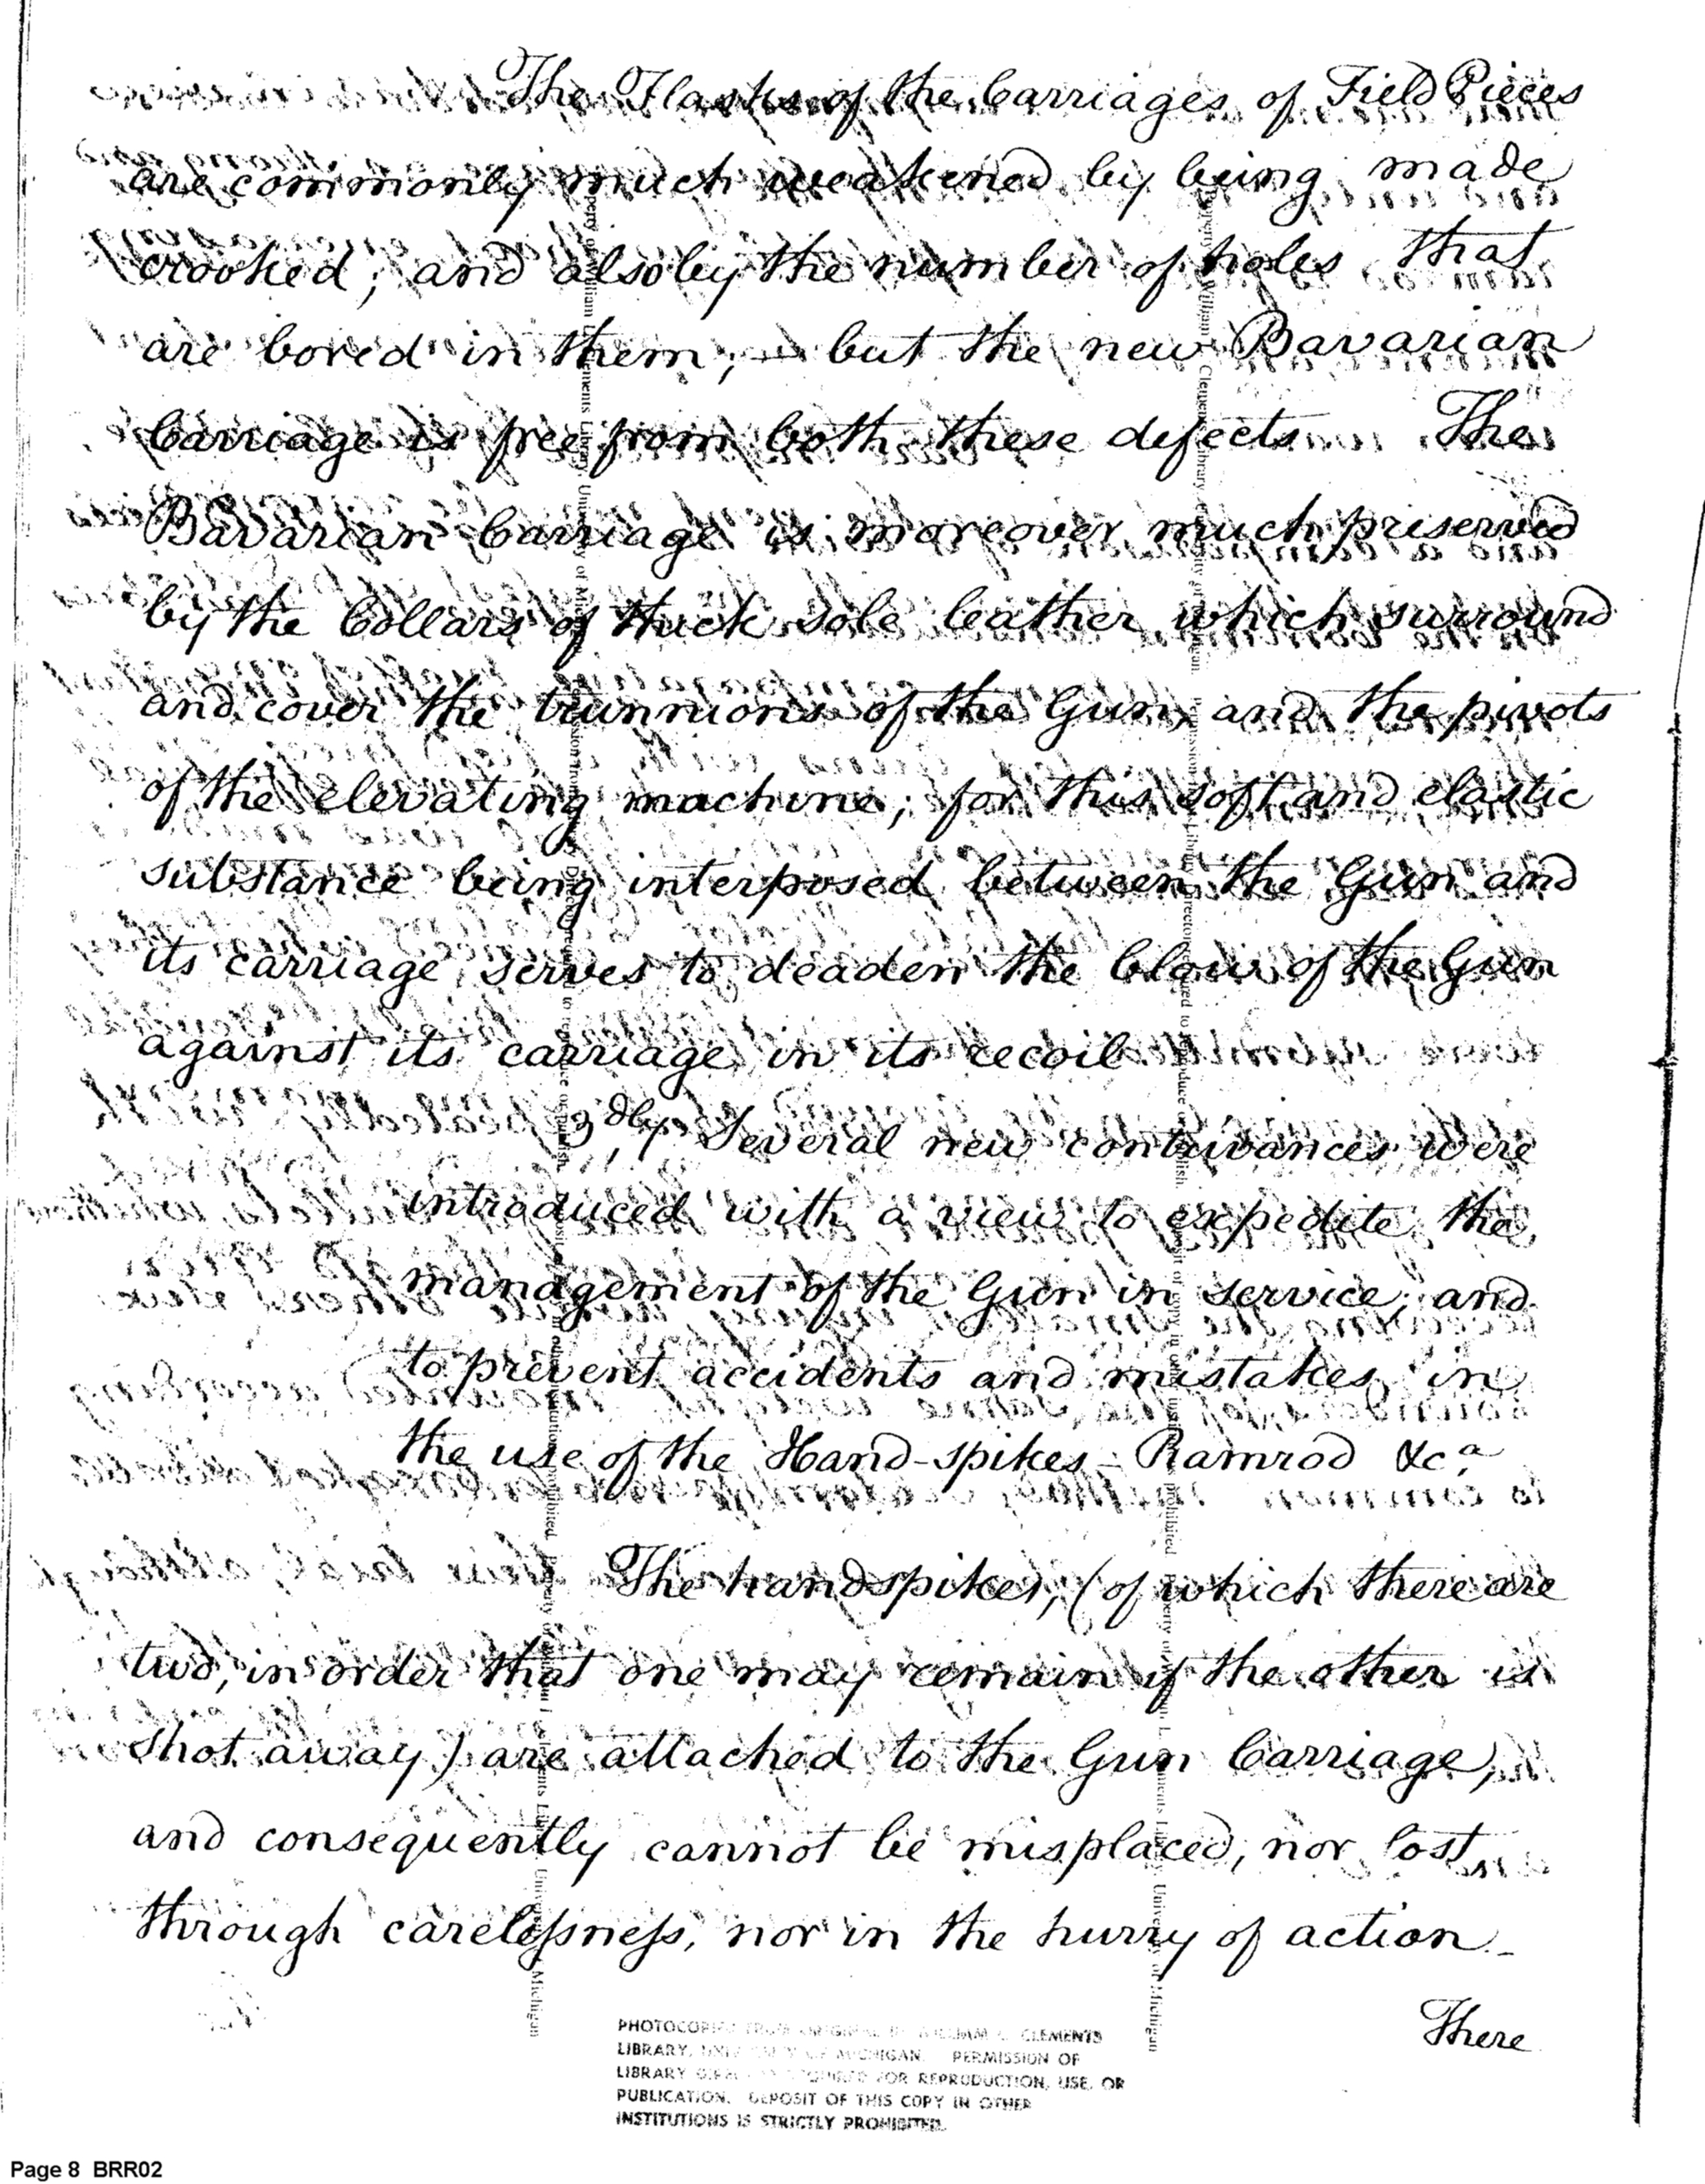 The Flasks of the Carriages of Field Pieces
are commonly much weakened by being made
crooked; and also by the number of holes that
are bored in them; — but the new Bavarian
Carriage is free from both these defects. The
Bavarian Carriage is moreover much preserved
by the Collars of thick sole leather which surround
and cover the trunnions of the Gun, and the pivots
of the elevating machine; for this soft and elastic
substance being interposed between the Gun and
its carriage, serves to deaden the blow of the Gun
against its carriage in its recoil.
3dly. Several new contrivances were
introduced with a view to expedite the
management of the Gun in service; and
to prevent accidents and mistakes in
the use of the Hand-spikes - Ramrod &ca
The handspikes, (of which there are
two, in order that one may remain if the other is
shot away) are attached to the Gun Carriage,
and consequently cannot be misplaced, nor lost
through carelessness, nor in the hurry of action. -
There
PHOTOCOPIED FROM ORIGINAL IN WILLIAM L. CLEMENTS
LIBRARY, UNIVERSITY OF MICHIGAN. PERMISSION OF
LIBRARY DIRECTOR REQUIRED FOR REPRODUCTION, USE, OR
PUBLICATION. DEPOSIT OF THIS COPY IN OTHER
INSTITUTIONS IS STRICTLY PROHIBITED.
Page 8 BRR02